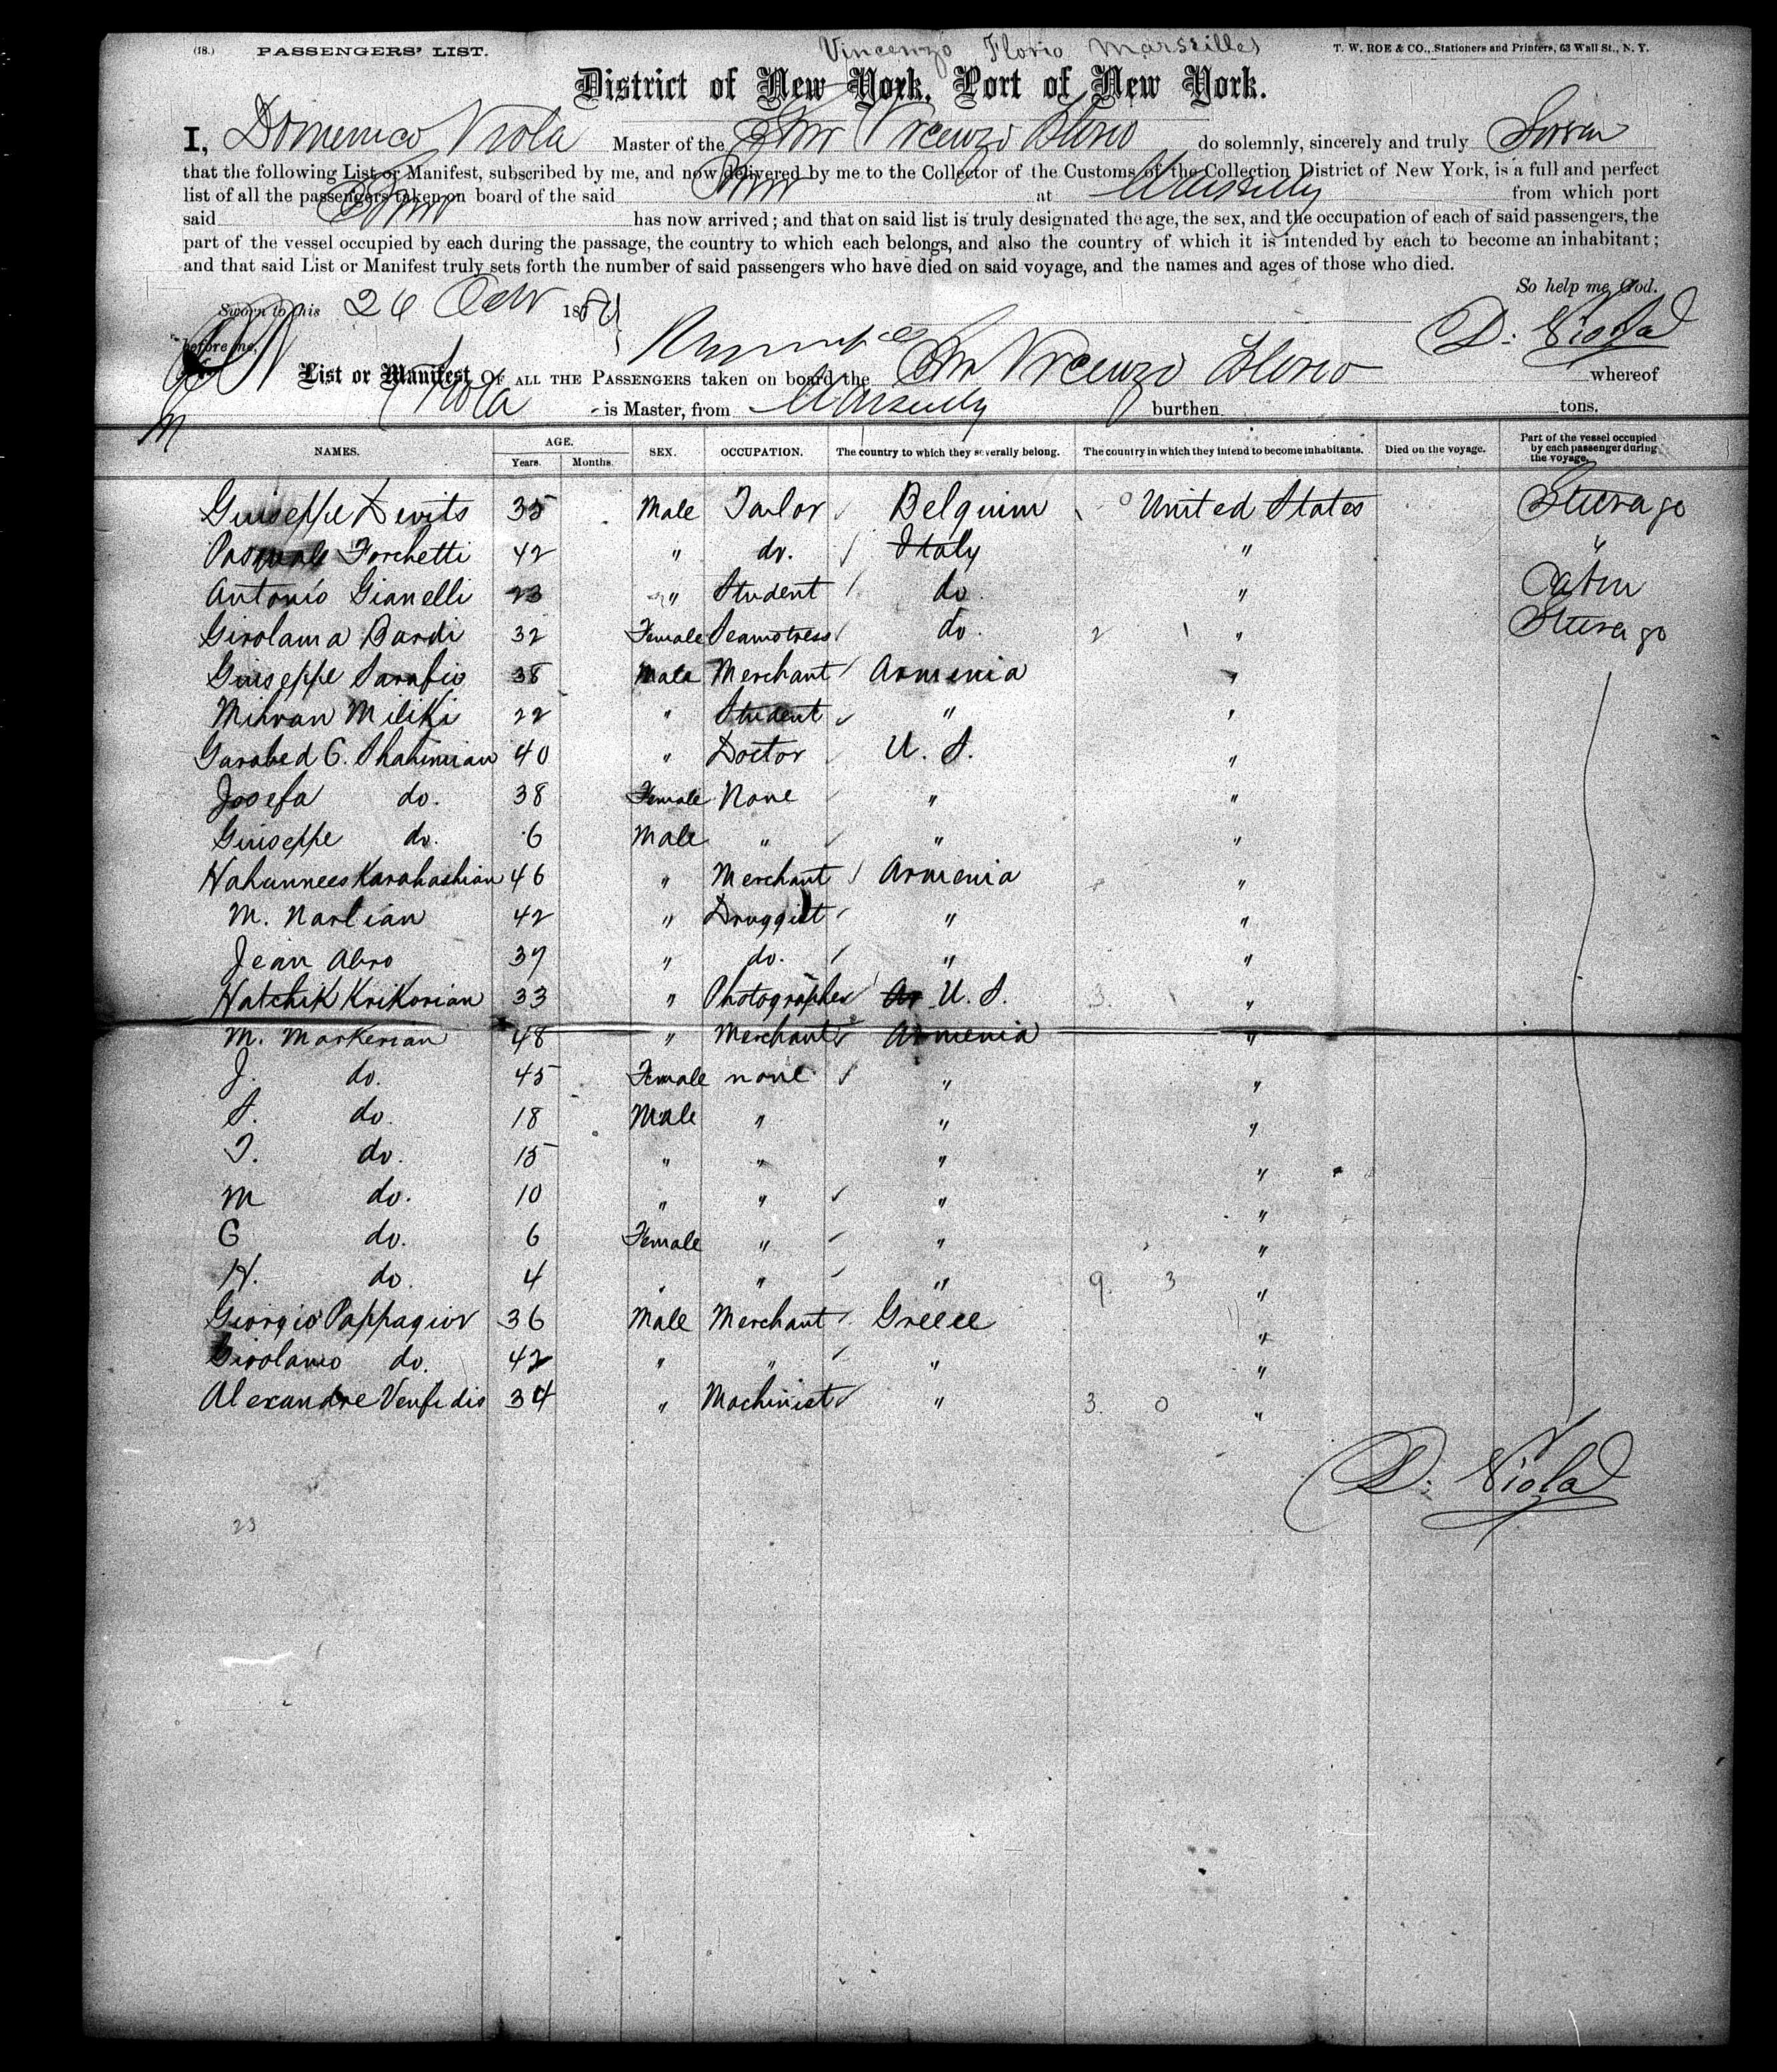 (18.) PASSENGERS' LIST. Vincenzo Florio Marseilles T. W. ROE & CO., Stationers and Printers, 63 Wall St., N. Y.
District of New York, Port of New York.
I, Domenico Viola Master of the Stmr Vicenzo Florio do solemnly, sincerely and truly Swear
that the following List or Manifest, subscribed by me, and now delivered by me to the Collector of the Customs of the Collection District of New York, is a full and perfect
list of all the passengers taken on board of the said Stmr at from which port
said Stmr has now arrived; and that on said list is truly designated the age, the sex, and the occupation of each of said passengers, the
part of the vessel occupied by each during the passage, the country to which each belongs, and also the country of which it is intended by each to become an inhabitant;
and that said List or Manifest truly sets forth the number of said passengers who have died on said voyage, and the names and ages of those who died.
So help me God.
Sworn to this 26 Octr 188
before me, D. Viola
List or Manifest OF ALL THE PASSENGERS taken on board the Stmr Vicenzo Florio whereof
Viola is Master, from burthen tons.
NAMES. AGE. Years. Months. SEX. OCCUPATION. The country to which they severally belong. The country in which they intend to become inhabitants. Died on the voyage. Part of the vessel occupied by each passenger during the voyage.
Guiseppe Devits 35 Male Tailor Belguim 0 United States Steerage
Pasquale Forchetti 42 " do. Italy " "
Antonio Gianelli 23 " Student do. " Cabin
Girolama Bardi 32 Female Seamstress do. 2 1 " Steerage
Guiseppe Sarafio 38 Male Merchant Armenia "
Mihran Miliki 22 " Student " "
Garabed G. Shahinian 40 " Doctor U. S. "
Josefa do. 38 Female None " "
Guiseppe do. 6 Male " " "
Hahannees Karahashian 46 " Merchant Armenia "
M. Narlian 42 " Druggist " "
Jean Abro 37 " do. " "
Hatchik Krikorian 33 " Photographer U. S. 3. "
M. Markerian 48 " Merchant Armenia "
J. do. 45 Female none " "
S. do. 18 Male " " "
T. do. 15 " " " "
M do. 10 " " " "
G do. 6 Female " " "
H. do. 4 " " " 9. 3 "
Giorgio Pappagior 36 Male Merchant Greece "
Girolamo do. 42 " " " "
Alexandre Venfidis 34 " Machinist " 3. 0 "
D. Viola
23